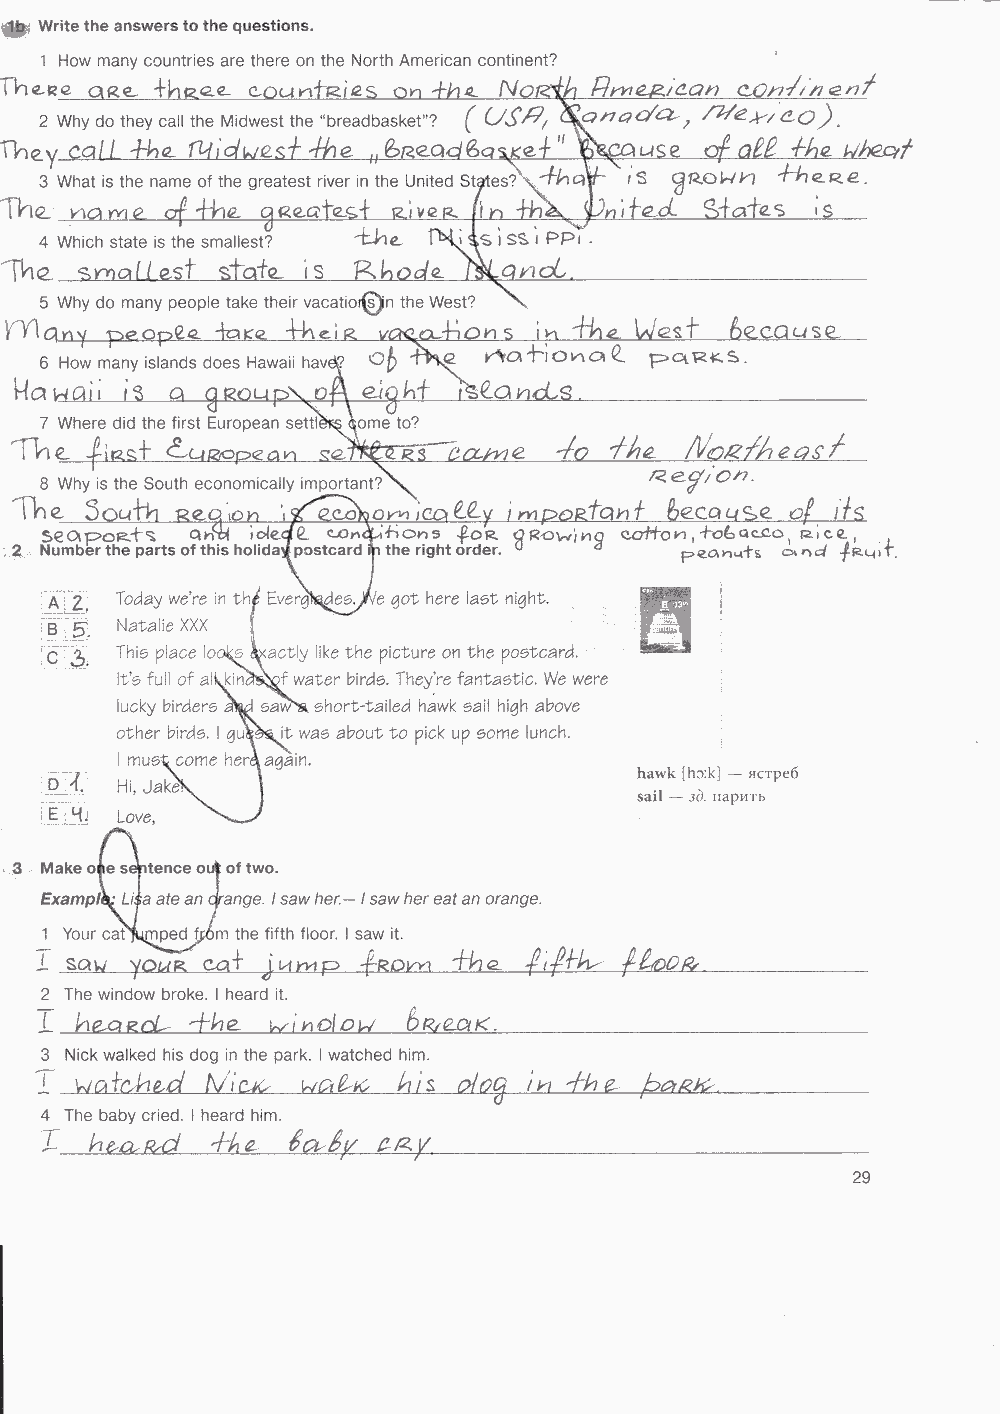 1b Write the answers to the questions.
1 How many countries are there on the North American continent?
There are three countries on the North American continent
2 Why do they call the Midwest the "breadbasket"? (USA, Canada, Mexico).
They call the Midwest the „breadbasket" because of all the wheat
3 What is the name of the greatest river in the United States? that is grown there.
The name of the greatest river in the United States is
4 Which state is the smallest? the Mississippi.
The smallest state is Rhode Island.
5 Why do many people take their vacations in the West?
Many people take their vacations in the West because
6 How many islands does Hawaii have? of the national parks.
Hawaii is a group of eight islands.
7 Where did the first European settlers come to?
The first European settlers came to the Northeast
region.
8 Why is the South economically important?
The South region is economically important because of its
seaports and ideal conditions for growing cotton, tobacco, rice,
2 Number the parts of this holiday postcard in the right order. peanuts and fruit.
A 2. Today we're in the Everglades. We got here last night.
B 5. Natalie XXX
C 3. This place looks exactly like the picture on the postcard.
It's full of all kinds of water birds. They're fantastic. We were
lucky birders and saw a short-tailed hawk sail high above
other birds. I guess it was about to pick up some lunch.
I must come here again.
hawk [hɔ:k] — ястреб
D 1. Hi, Jake!
sail — зд. парить
E 4. Love,
3 Make one sentence out of two.
Example: Lisa ate an orange. I saw her.— I saw her eat an orange.
1 Your cat jumped from the fifth floor. I saw it.
I saw your cat jump from the fifth floor.
2 The window broke. I heard it.
I heard the window break.
3 Nick walked his dog in the park. I watched him.
I watched Nick walk his dog in the park.
4 The baby cried. I heard him.
I heard the baby cry.
29